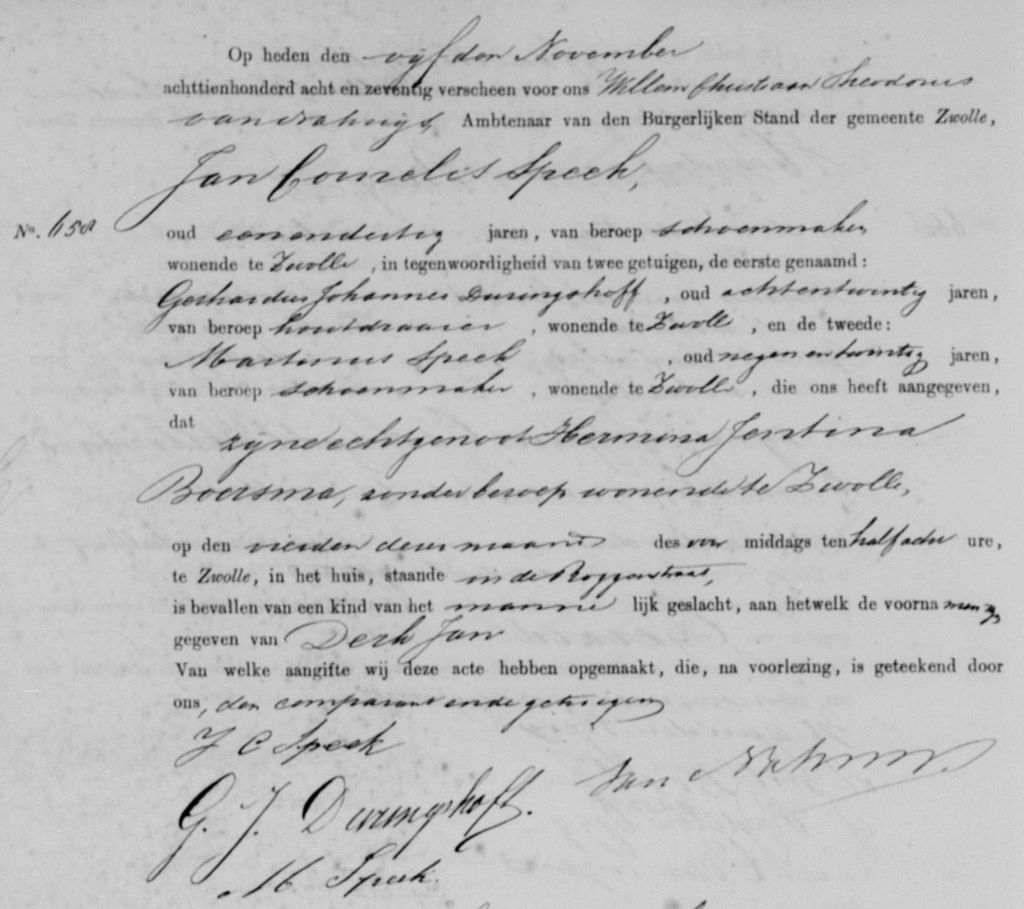 Op heden den vijfden November
achttienhonderd acht en zeventig verscheen voor ons Willem Christiaan Theodorus
van Nahuys, Ambtenaar van den Burgerlijken Stand der gemeente Zwolle,
Jan Cornelis Speek,
No. 658
oud eenendertig jaren, van beroep schoenmaker
wonende te Zwolle, in tegenwoordigheid van twee getuigen, de eerste genaamd:
Gerhardus Johannes Duringshoff, oud achtentwintig jaren,
van beroep houtdraaier, wonende te Zwolle, en de tweede:
Martinus Speek, oud negen en twintig jaren,
van beroep schoenmaker, wonende te Zwolle, die ons heeft aangegeven,
dat zijne echtgenoot Hermina Jentina
Boersma, zonder beroep wonende te Zwolle,
op den vierden dezer maand des voor middags ten half acht ure,
te Zwolle, in het huis, staande in de Roggenstraat,
is bevallen van een kind van het manne lijk geslacht, aan hetwelk de voorna men zijn
gegeven van Derk Jan
Van welke aangifte wij deze acte hebben opgemaakt, die, na voorlezing, is geteekend door
ons, den comparant en de getuigen
J C Speek
van Nahuys.
G. J. Duringshoff.
M Speek.